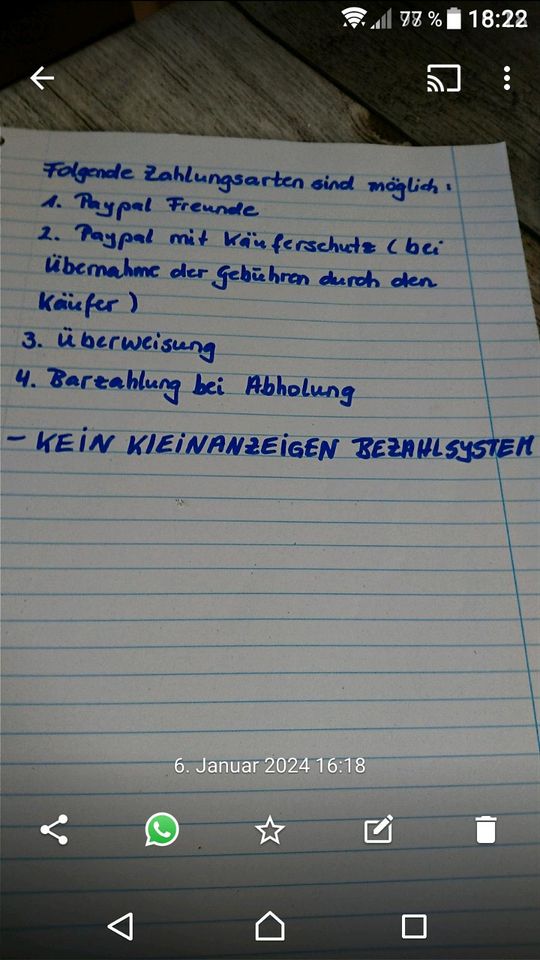 77 % 18:22
Folgende Zahlungsarten sind möglich:
1. Paypal Freunde
2. Paypal mit Käuferschutz (bei
Übernahme der Gebühren durch den
Käufer)
3. Überweisung
4. Barzahlung bei Abholung
- KEIN KLEINANZEIGEN BEZAHLSYSTEM
6. Januar 2024 16:18